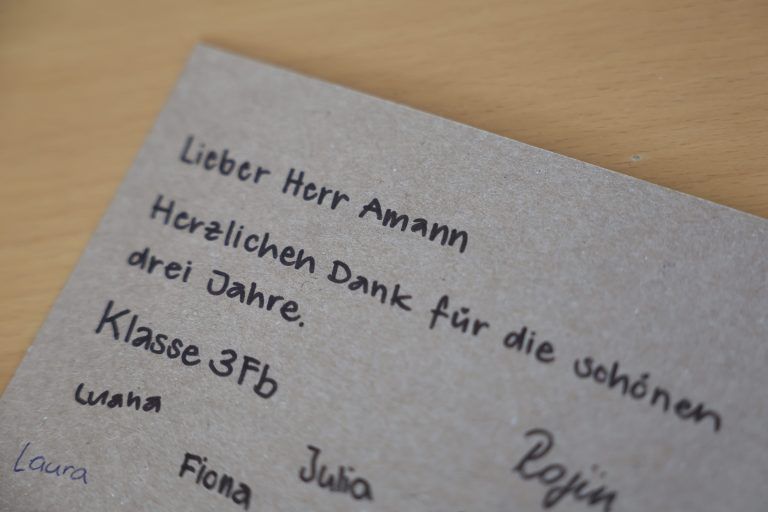 Lieber Herr Amann
Herzlichen Dank für die schönen
drei Jahre.
Klasse 3Fb
Luana
Laura Fiona Julia Rojin